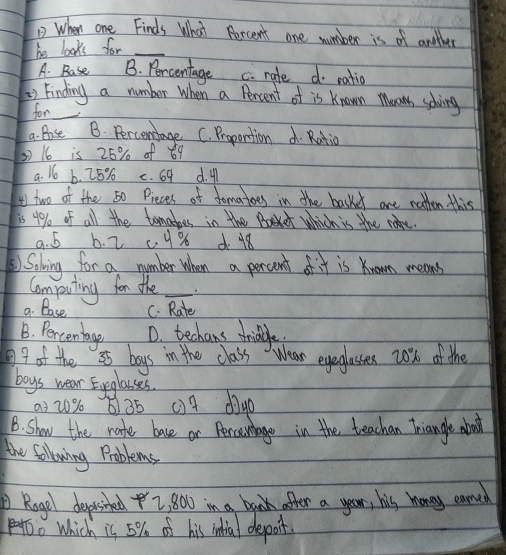 1) When one Finds What Percent one number is of another
he looks for ___
A. Base B. Percentage c. rate d. ratio
2) Finding a number When a Percent of is Known Means solving
for ___
a. Base B. Percentage C. Proportion d. Ratio
3) 16 is 25% of 64
a. 16 b. 25% c. 64 d. 41
4) two of the 50 Pieces of tomatoes in the basket are rotten this
is 4% of all the tomatoes in the Basket Which is the rate.
a. 5 b. 2 c. 4% d. 48
5) Solving for a number When a percent of it is Known means
Computing for the ___.
a. Base C. Rate
B. Percentage D. techans triangle.
6) 7 of the 35 boys in the class Wear eyeglasses 20% of the
boys wear Eyeglasses.
a) 20% b) 35 c) 7 d) 40
B. Show the rate base or Percentage in the teachan Triangle about
the following Problems
1) Rogel deposited ₱ 2,800 in a bank after a year, his money earned
Which is 5% of his intial deposit.